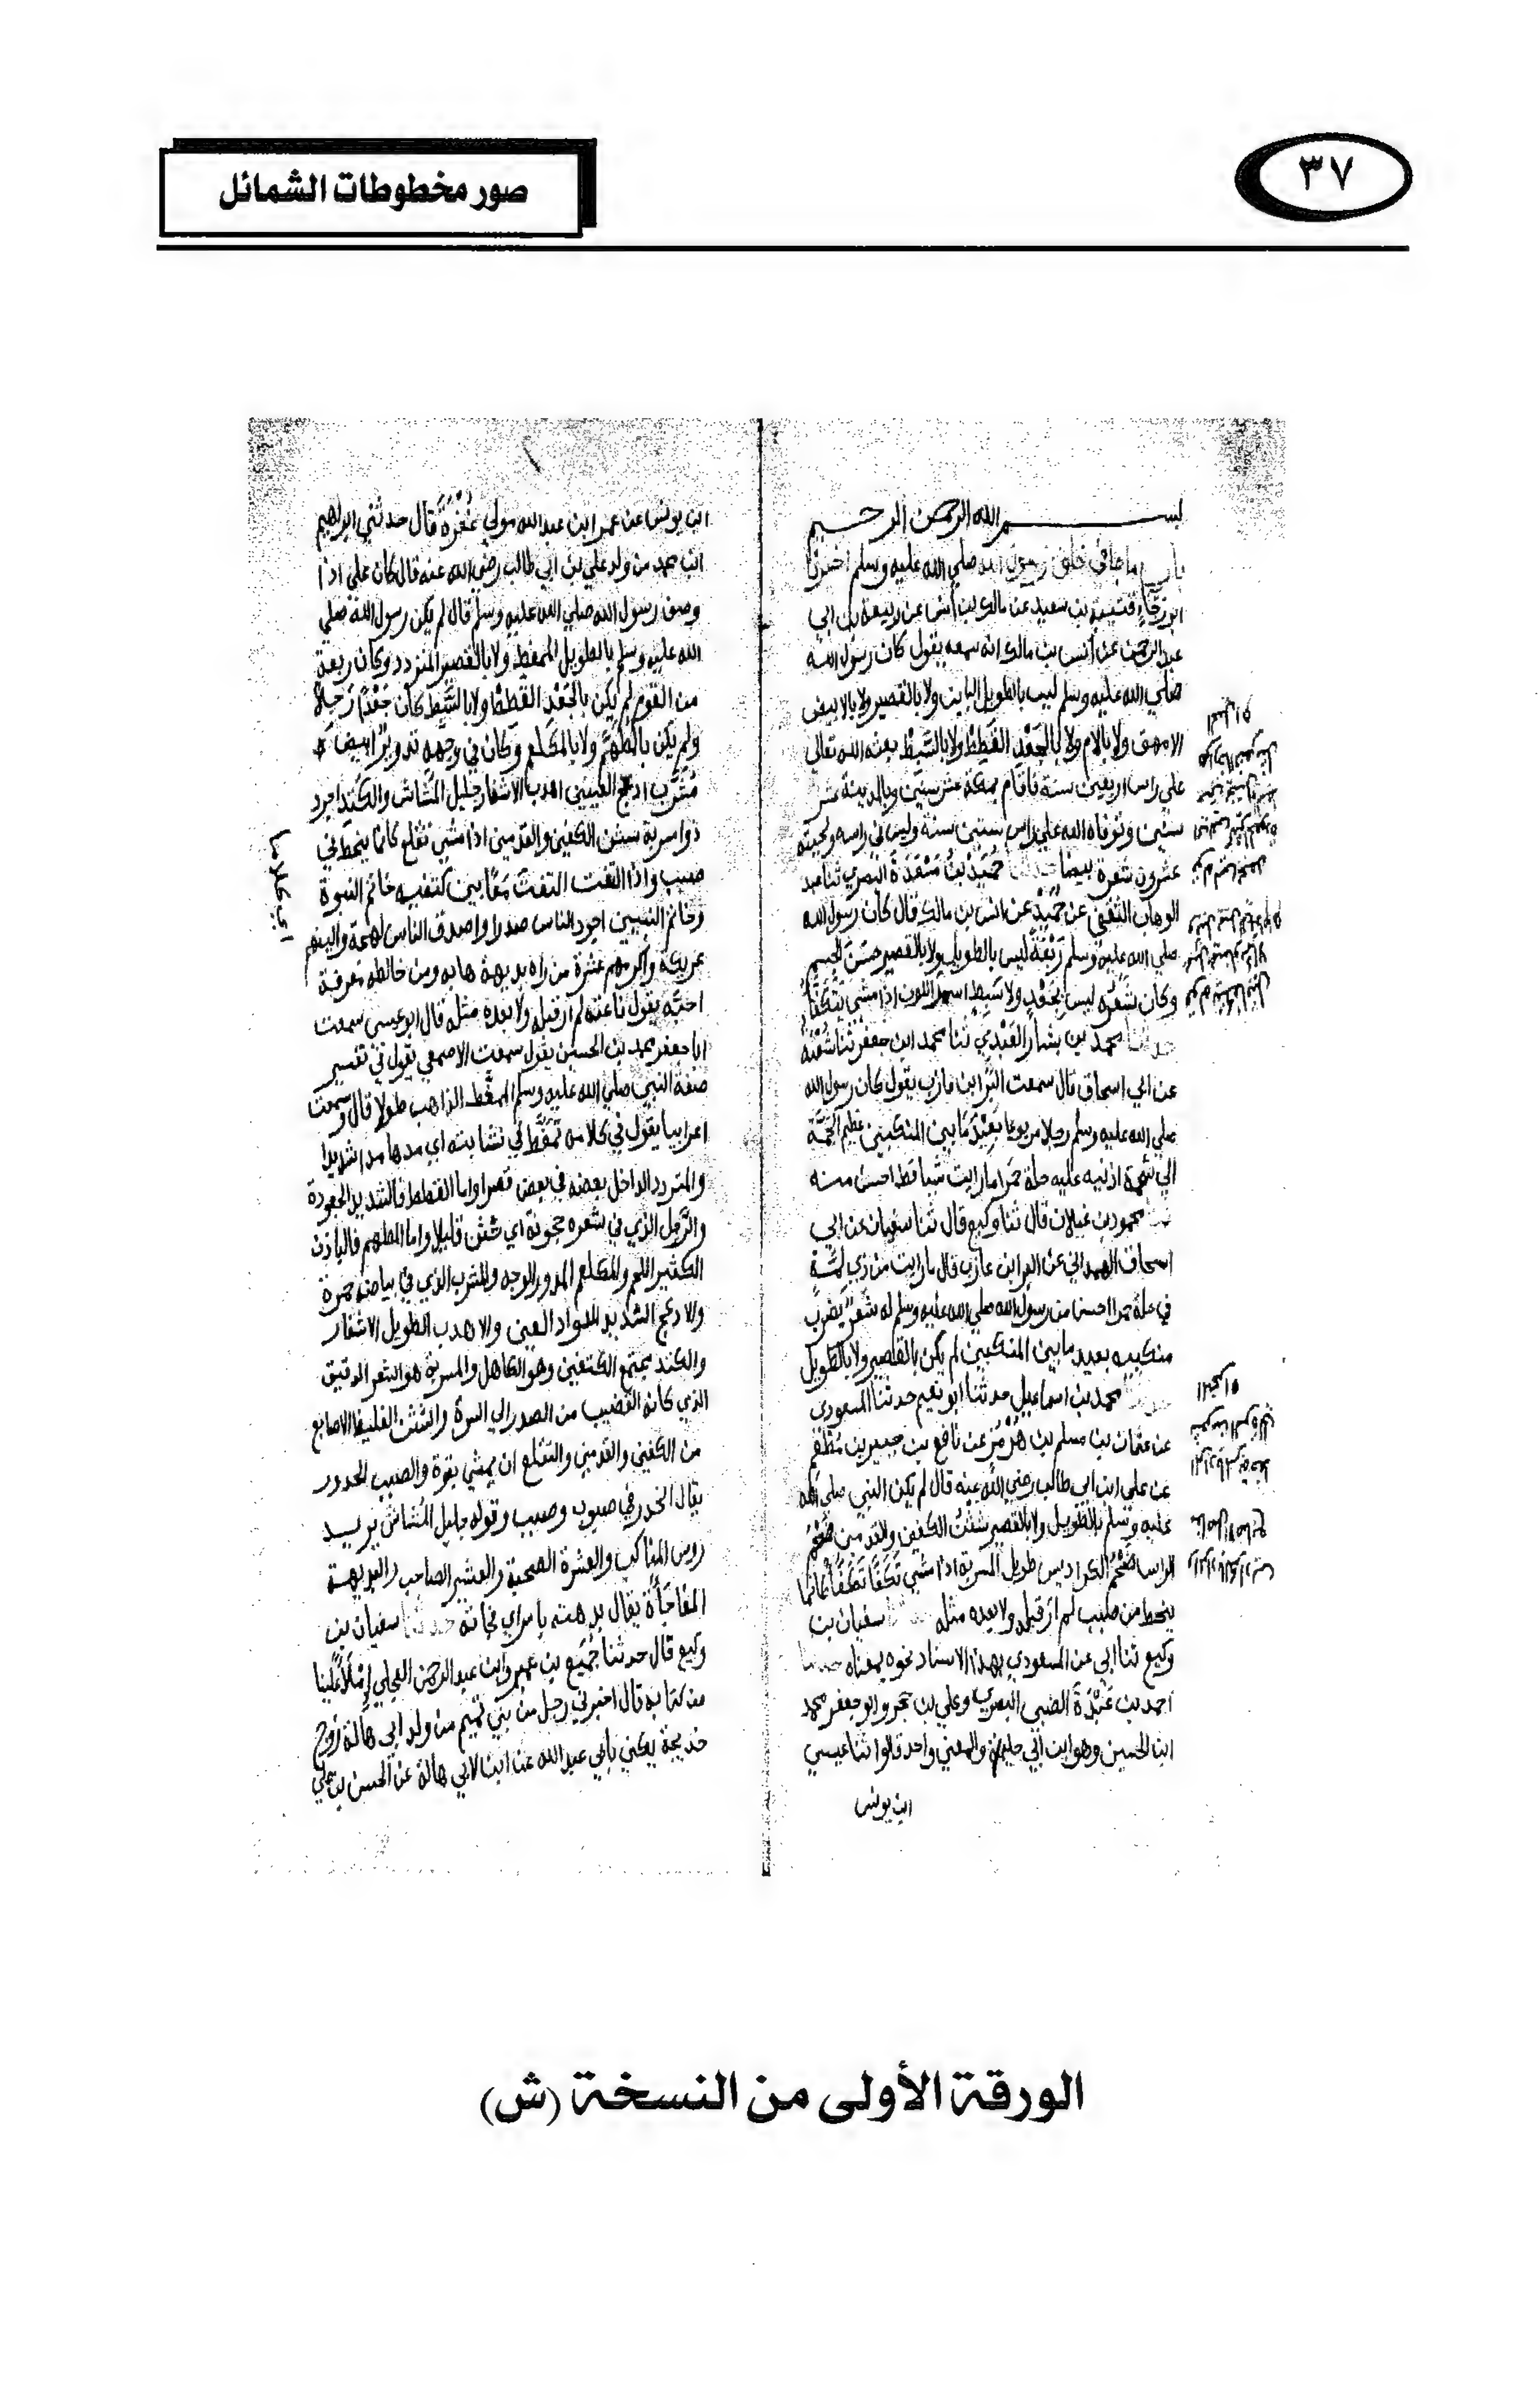 ٣٧
صور مخطوطات الشمائل
بسم الله الرحمن الرحيم
باب ما جا في خلق رسول الله صلي الله عليه وسلم اخبرنا
ابو رجاء قتيبة بن سعيد عن مالك بن أنس عن ربيعة بن ابي
عبد الرحمن عن أنس بن مالك انه سمعه يقول كان رسول الله
صلي الله عليه وسلم ليس بالطويل الباين ولا بالقصير ولا بالابيض
الامهق ولا بالادم ولا بالجعد القطط ولا بالسبط بعثه الله تعالي
علي راس اربعين سنة فاقام بمكة عشر سنين وبالمدينة عشر
سنين وتوفاه الله علي راس ستين سنة وليس في راسه ولحيته
عشرون شعرة بيضا حدثنا حميد بن مسعدة البصري ثنا عبد
الوهاب الثقفي عن حميد عن انس بن مالك قال كان رسول الله
صلي الله عليه وسلم ربعة ليس بالطويل ولا بالقصير حسن الجسم
وكان شعره ليس بجعد ولا سبط اسمر اللون اذا مشي يتكفأ
حدثنا محمد بن بشار العبدي ثنا محمد ابن جعفر ثنا شعبة
عن ابي اسحاق قال سمعت البرا ابن عازب يقول كان رسول الله
صلي الله عليه وسلم رجلا مربوعا بعيد ما بين المنكبين عظيم الجمة
الي شحمة اذنيه عليه حلة حمرا ما رايت شيا قط احسن منه
محمود بن غيلان قال ثنا وكيع قال ثنا سفيان عن ابي
اسحاق الهمداني عن البرا ابن عازب قال ما رايت من ذي لمة
في حلة حمرا احسن من رسول الله صلي الله عليه وسلم له شعر يضرب
منكبيه بعيد ما بين المنكبين لم يكن بالقصير ولا بالطويل
محمد بن اسماعيل حدثنا ابو نعيم حدثنا المسعودي
عن عثمان بن مسلم بن هرمز عن نافع بن جبير بن مطعم
عن علي ابن ابي طالب رضي الله عنه قال لم يكن النبي صلي الله
عليه وسلم بالطويل ولا بالقصير شثن الكفين والقدمين ضخم
الراس ضخم الكراديس طويل المسربة اذا مشي تكفا تكفأ كانما
ينحط من صبب لم ار قبله ولا بعده مثله سفيان بن
وكيع ثنا ابي عن المسعودي بهذا الاسناد نحوه بمعناه حدثنا
احمد بن عبدة الضبي البصري وعلي بن حجر وابو جعفر محمد
ابن الحسين وهو ابن ابي حليمة والمعني واحد قالوا ثنا عيسي
ابن يونس
ابن يونس عن عمر ابن عبد الله مولي غفرة قال حدثني ابراهيم
ابن محمد من ولد علي بن ابي طالب رضي الله عنه قال كان علي اذا
وصف رسول الله صلي الله عليه وسلم قال لم يكن رسول الله صلي
الله عليه وسلم بالطويل الممغط ولا بالقصير المتردد وكان ربعة
من القوم لم يكن بالجعد القطط ولا بالسبط كان جعدا رجلا
ولم يكن بالمطهم ولا بالمكلثم وكان في وجهه تدوير ابيض
مشرب ادعج العينين اهدب الاشفار جليل المشاش والكتد اجرد
ذو امسربة شثن الكفين والقدمين اذا مشي تقلع كانما ينحط في
صبب واذا التفت التفت معا بين كتفيه خاتم النبوة
وخاتم النبيين اجود الناس صدرا واصدق الناس لهجة والينهم
عريكة واكرمهم عشرة من راه بديهة هابه ومن خالطه معرفة
احبه يقول ناعته لم ار قبله ولا بعده مثله قال ابو عيسي سمعت
ابا جعفر محمد بن الحسين يقول سمعت الاصمعي يقول في تفسير
صفة النبي صلي الله عليه وسلم الممغط الذاهب طولا قال وسمعت
اعرابيا يقول في كلامه تمغط في نشابته اي مدها مدا شديدا
والمتردد الداخل بعضه في بعض قصرا واما القطط فالشديد الجعودة
والرجل الذي في شعره حجونة اي تثن قليلا واما المطهم فالبادن
الكثير اللحم والمكلثم المدور الوجه والمشرب الذي في بياضه حمرة
والادعج الشديد سواد العين والاهدب الطويل الاشفار
والكتد مجتمع الكتفين وهو الكاهل والمسربة هو الشعر الدقيق
الذي كانه القضيب من الصدر الي السرة والشثن الغليظ الاصابع
من الكفين والقدمين والتقلع ان يمشي بقوة والصبب الحدور
يقال انحدر في صبوب وصبب وقوله جليل المشاش يريد
روس المناكب والعشرة الصحبة والعشير الصاحب والبديهة
المفاجأة يقال بدهته بامر اي فجاته حدثنا سفيان بن
وكيع قال حدثنا جميع بن عمير وابن عبد الرحمن العجلي املاء علينا
من كتابه قال اخبرني رجل من بني تميم من ولد ابي هالة زوج
خديجة يكني بابي عبد الله عن ابن لابي هالة عن الحسن بن علي
الورقة الأولى من النسخة (ش)